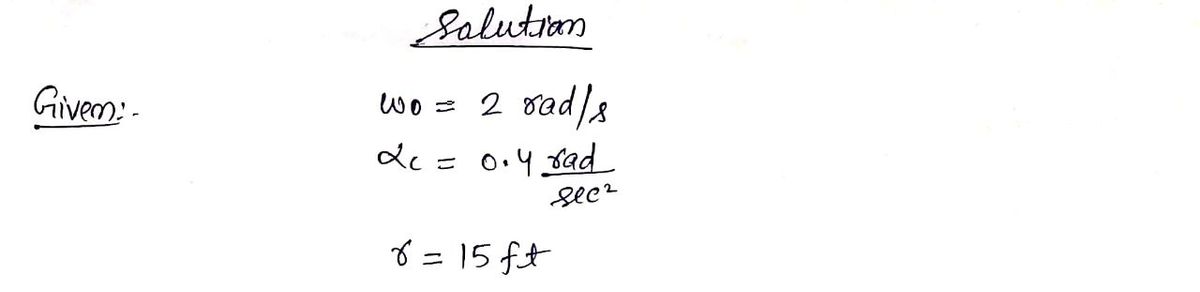 Solution
Given:- ω0 = 2 rad/s
αc = 0.4 rad/sec²
r = 15 ft